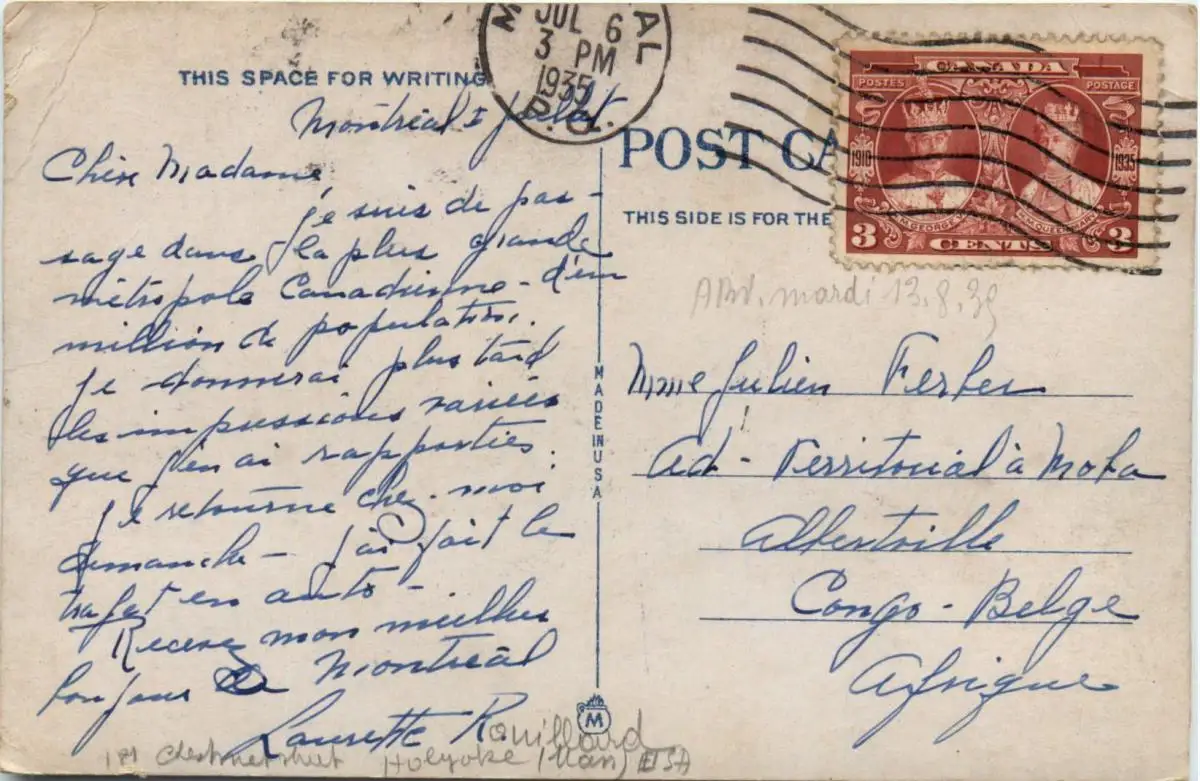 THIS SPACE FOR WRITING
Montréal I juillet.
Chère Madame
je suis de pas-
sage dans la plus grande
métropole Canadienne - d'un
million de population.
Je donnerai plus tard
les impressions variées
que j'en ai rapportées.
Je retourne chez-moi
dimanche - j'ai fait le
trajet en auto -
Recevez mon meilleur
bonjour de Montréal
Laurette Rouillard
181 Chestnut street Holyoke (Mass) USA
MADE IN USA
M
M AL
JUL 6
3 PM
1935
P.Q.
POST CA
THIS SIDE IS FOR THE
CANADA
POSTES POSTAGE
1910 1935
H.M. KING GEORGE V H.M. QUEEN MARY
3 CENTS 3
Arr. mardi 13.8.35
Mme Julien Ferber
Ad - Territorial à Moba
Albertville
Congo - Belge
Afrique